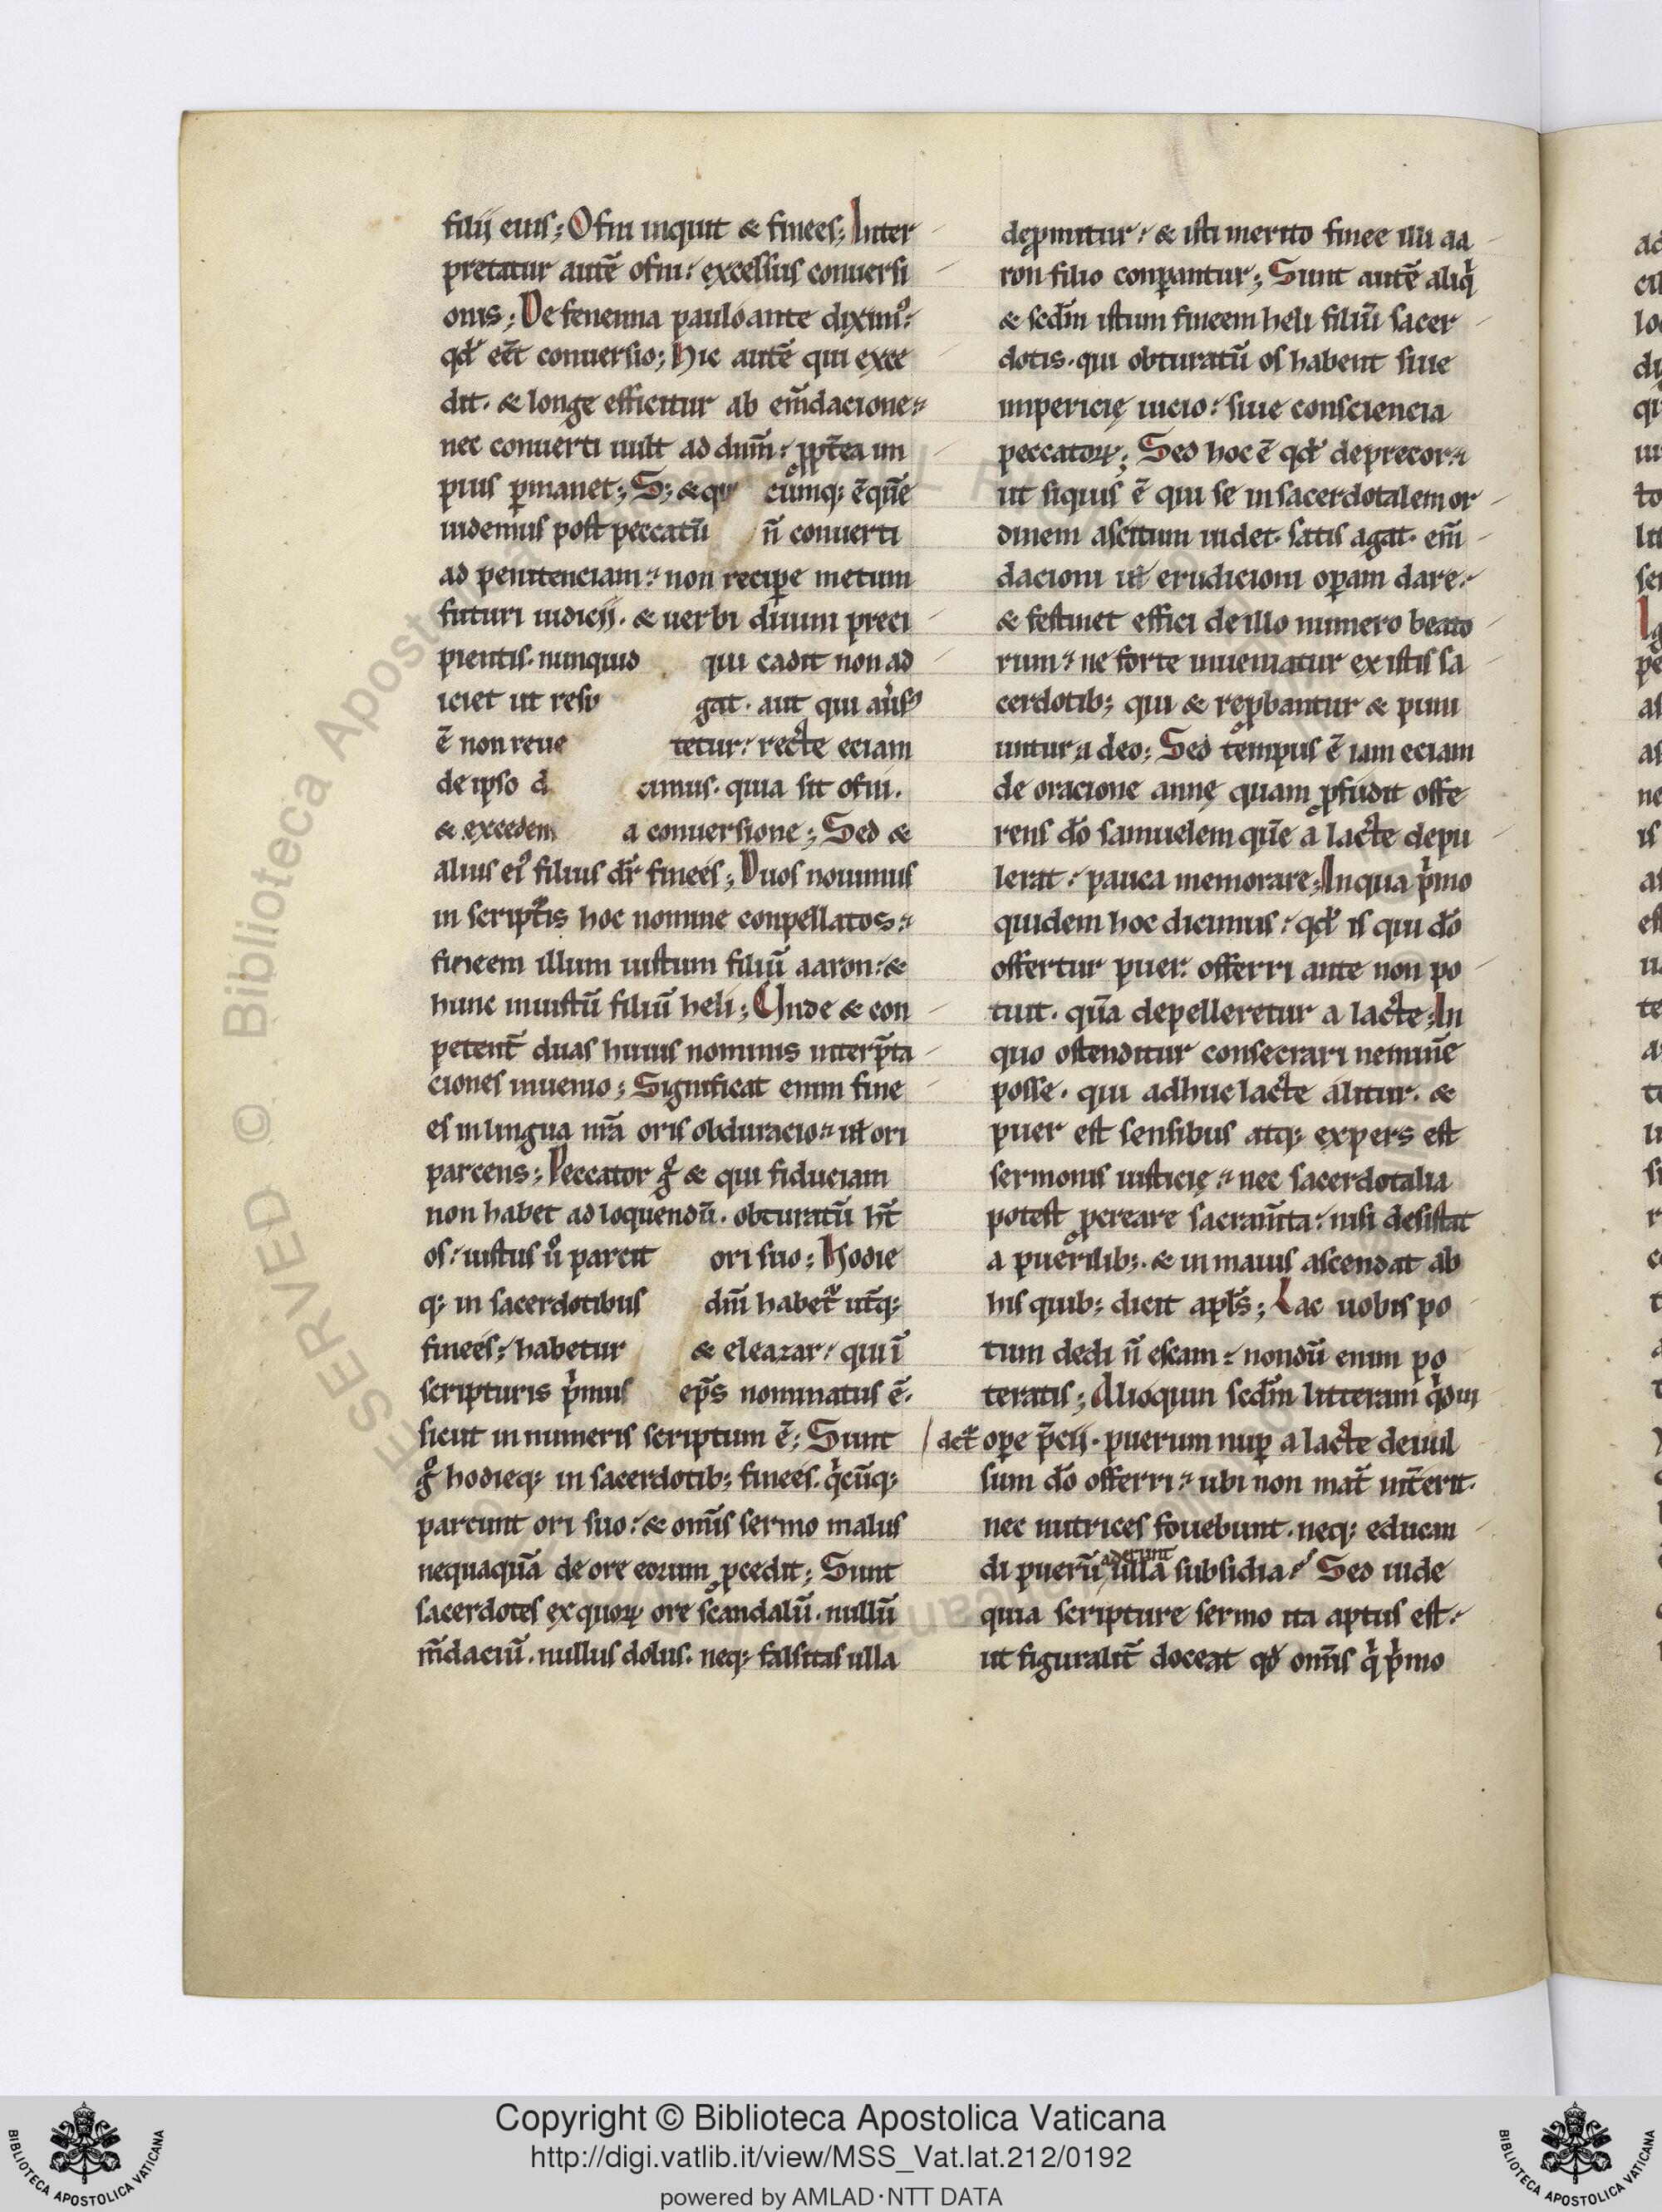 filij eius; Ofni inquit & finees; Inter
pretatur autē ofni: excessus conuersi
onis; De fenenna paulo ante diximꝰ:
qđ eēt conuersio; Hic autē qui exce
dit. & longe efficitur ab em̄dacione:
nec conuerti uult ad dn̄m: ꝓpt̄ea im
pius ꝑmanet; S; & qui cumq; ē quē
uidemus post peccatū n̄ conuerti
ad penitenciam: non recipe metum
futuri iudicij. & uerbi diuini preci
pientis. nunquid qui cadit non ad
iciet ut resu gat. aut qui au̓sꝰ
ē non reue tetur: recte eciam
de ipso d cimus. quia sit ofni.
& excedens a conuersione; Sed &
alius eiꝰ filius dr̄ finees; Duos nouimus
in scriptis hoc nomine conpellatos:
fineem illum iustum filiū aaron: &
hunc iniustū filiū heli; Unde & con
petent̄ duas huius nominis interp̄ta
ciones inuenio; Significat enim fine
es in lingua nr̄a oris obduracio: ut̄ ori
parcens; Peccator g̊ & qui fiduciam
non habet ad loquendū. obturatū ht̄
os: iustus u̓o parcit ori suo; Hodie
q; in sacerdotibus dn̄i habet᷑ ut̄q;
finees: habetur & eleazar: qui ī
scripturis p̓mus ep̄s nominatus ē.
sicut in numeris scriptum ē; Sunt
g̊ hodieq; in sacerdotib; finees. q̓cūq;
parcunt ori suo: & om̄is sermo malus
nequaquā de ore eorum ꝓcedit; Sunt
sacerdotes ex quoꝝ ore scandalū. nullū
m̄daciū. nullus dolus. neq; falsitas ulla
depromitur: & isti merito finee illi aa
ron filio conparantur; Sunt autē aliq̓
& scd̄m istum fineem heli filiū sacer
dotis. qui obturatū os habent siue
impericię uicio: siue consciencia
peccatoꝝ; Sed hoc ē qđ deprecor:
ut siquis ē qui se in sacerdotalem or
dinem ascitum uidet. satis agat. em̄
dacioni ut̄ erudicioni oꝑam dare:
& festinet effici de illo numero beato
rum: ne forte inueniatur ex istis sa
cerdotib; qui & reꝓbantur & puni
untur a deo; Sed tempus ē iam eciam
de oracione annę quam ꝓfudit offe
rens dō samuelem quē a lacte depu
lerat: pauca memorare; In qua p̓mo
quidem hoc dicimus: qđ is qui dō
offertur puer: offerri ante non po
tuit. quā depelleretur a lacte; In
quo ostenditur consecrari neminē
posse. qui adhuc lacte alitur. &
puer est sensibus atq; expers est
sermonis iusticię: nec sacerdotalia
potest ꝓcreare sacram̄ta: nisi desistat
a puerilib;. & in maius ascendat ab
his quib; dicit apl̄s; Lac uobis po
tum dedi n̄ escam: nondū enim po
teratis; Alioquin scd̄m litteram q̓d in
act̄ ope p̄cij. puerum nuꝑ a lacte deuul
sum dō offerri: ubi non mat̄ int̄erit.
nec nutrices fouebunt. neq; educan
aderunt
di puerū ulla subsidia? Sed uide
quia scripture sermo ita aptus est:
ut figuralit̄ doceat qđ om̄is q̓ p̓mo
Copyright © Biblioteca Apostolica Vaticana
http://digi.vatlib.it/view/MSS_Vat.lat.212/0192
powered by AMLAD·NTT DATA
BIBLIOTECA APOSTOLICA VATICANA
BIBLIOTECA APOSTOLICA VATICANA